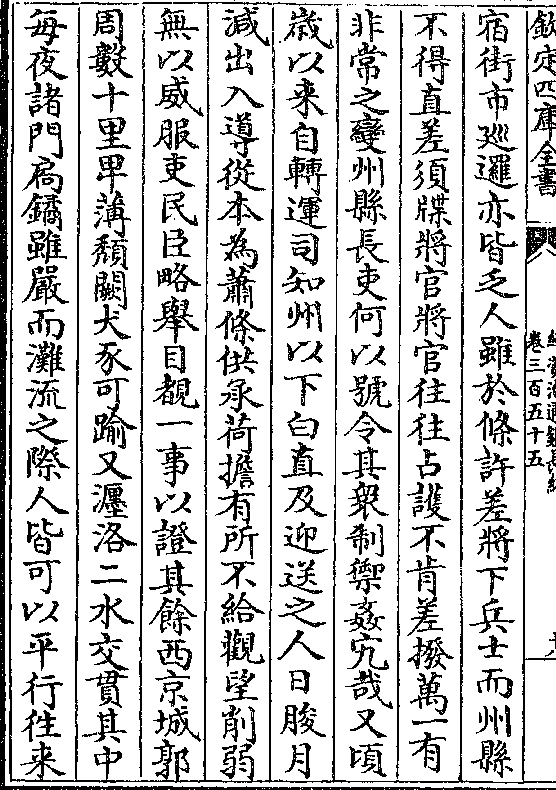 欽定四庫全書
卷三百五十五
宿街市廵邏亦皆乏人雖於條許差將下兵士而州縣
不得直差須牒將官將官往往占護不肯差撥萬一有
非常之變州縣長吏何以號令其衆制禦姦宄哉又頃
歲以来自轉運司知州以下白直及迎送之人日朘月
減出入導從本為蕭條供承荷擔有所不給觀望削弱
無以威服吏民臣略舉目覩一事以證其餘西京城郭
周數十里卑薄頽闕犬豕可踰又瀍洛二水交貫其中
每夜諸門扄鐍雖嚴而灘流之際人皆可以平行徃来